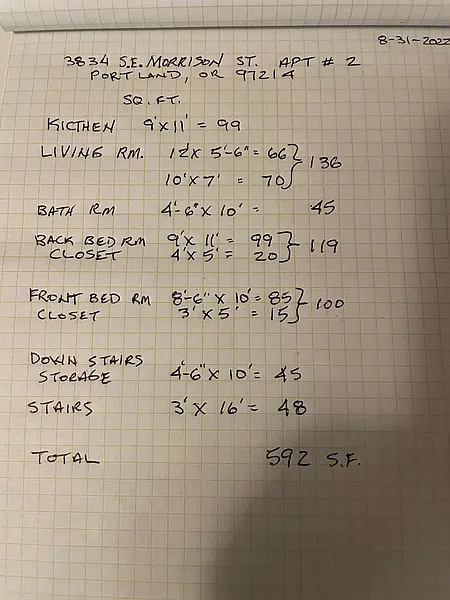 8-31-2022
3834 S.E. MORRISON ST. APT # 2
PORTLAND, OR 97214
SQ. FT.
KICTHEN 9'X11' = 99
LIVING RM. 12'X 5'-6" = 66
10'X 7' = 70 } 136
BATH RM 4'-6" X 10' = 45
BACK BED RM 9'X 11' = 99
CLOSET 4'X 5' = 20 } 119
FRONT BED RM 8'-6" X 10' = 85
CLOSET 3'X 5' = 15 } 100
DOWN STAIRS
STORAGE 4'-6" X 10' = 45
STAIRS 3' X 16' = 48
TOTAL 592 S.F.